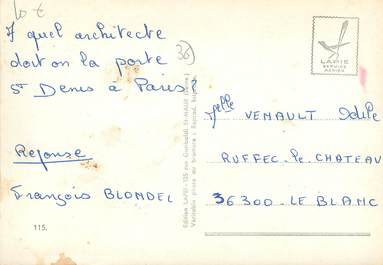 10 €
7 quel architecte
doit on la porte
St Denis à Paris?
36
Reponse
François BLONDEL
115.
Edition LAPIE - 125 rue Garibaldi St-MAUR (Seine)
Véritable photo au bromure - Reprod. 
LAPIE
SERVICE
AERIEN
Melle VENAULT Odile
RUFFEC-le-CHATEAU
36300 - LE BLANC